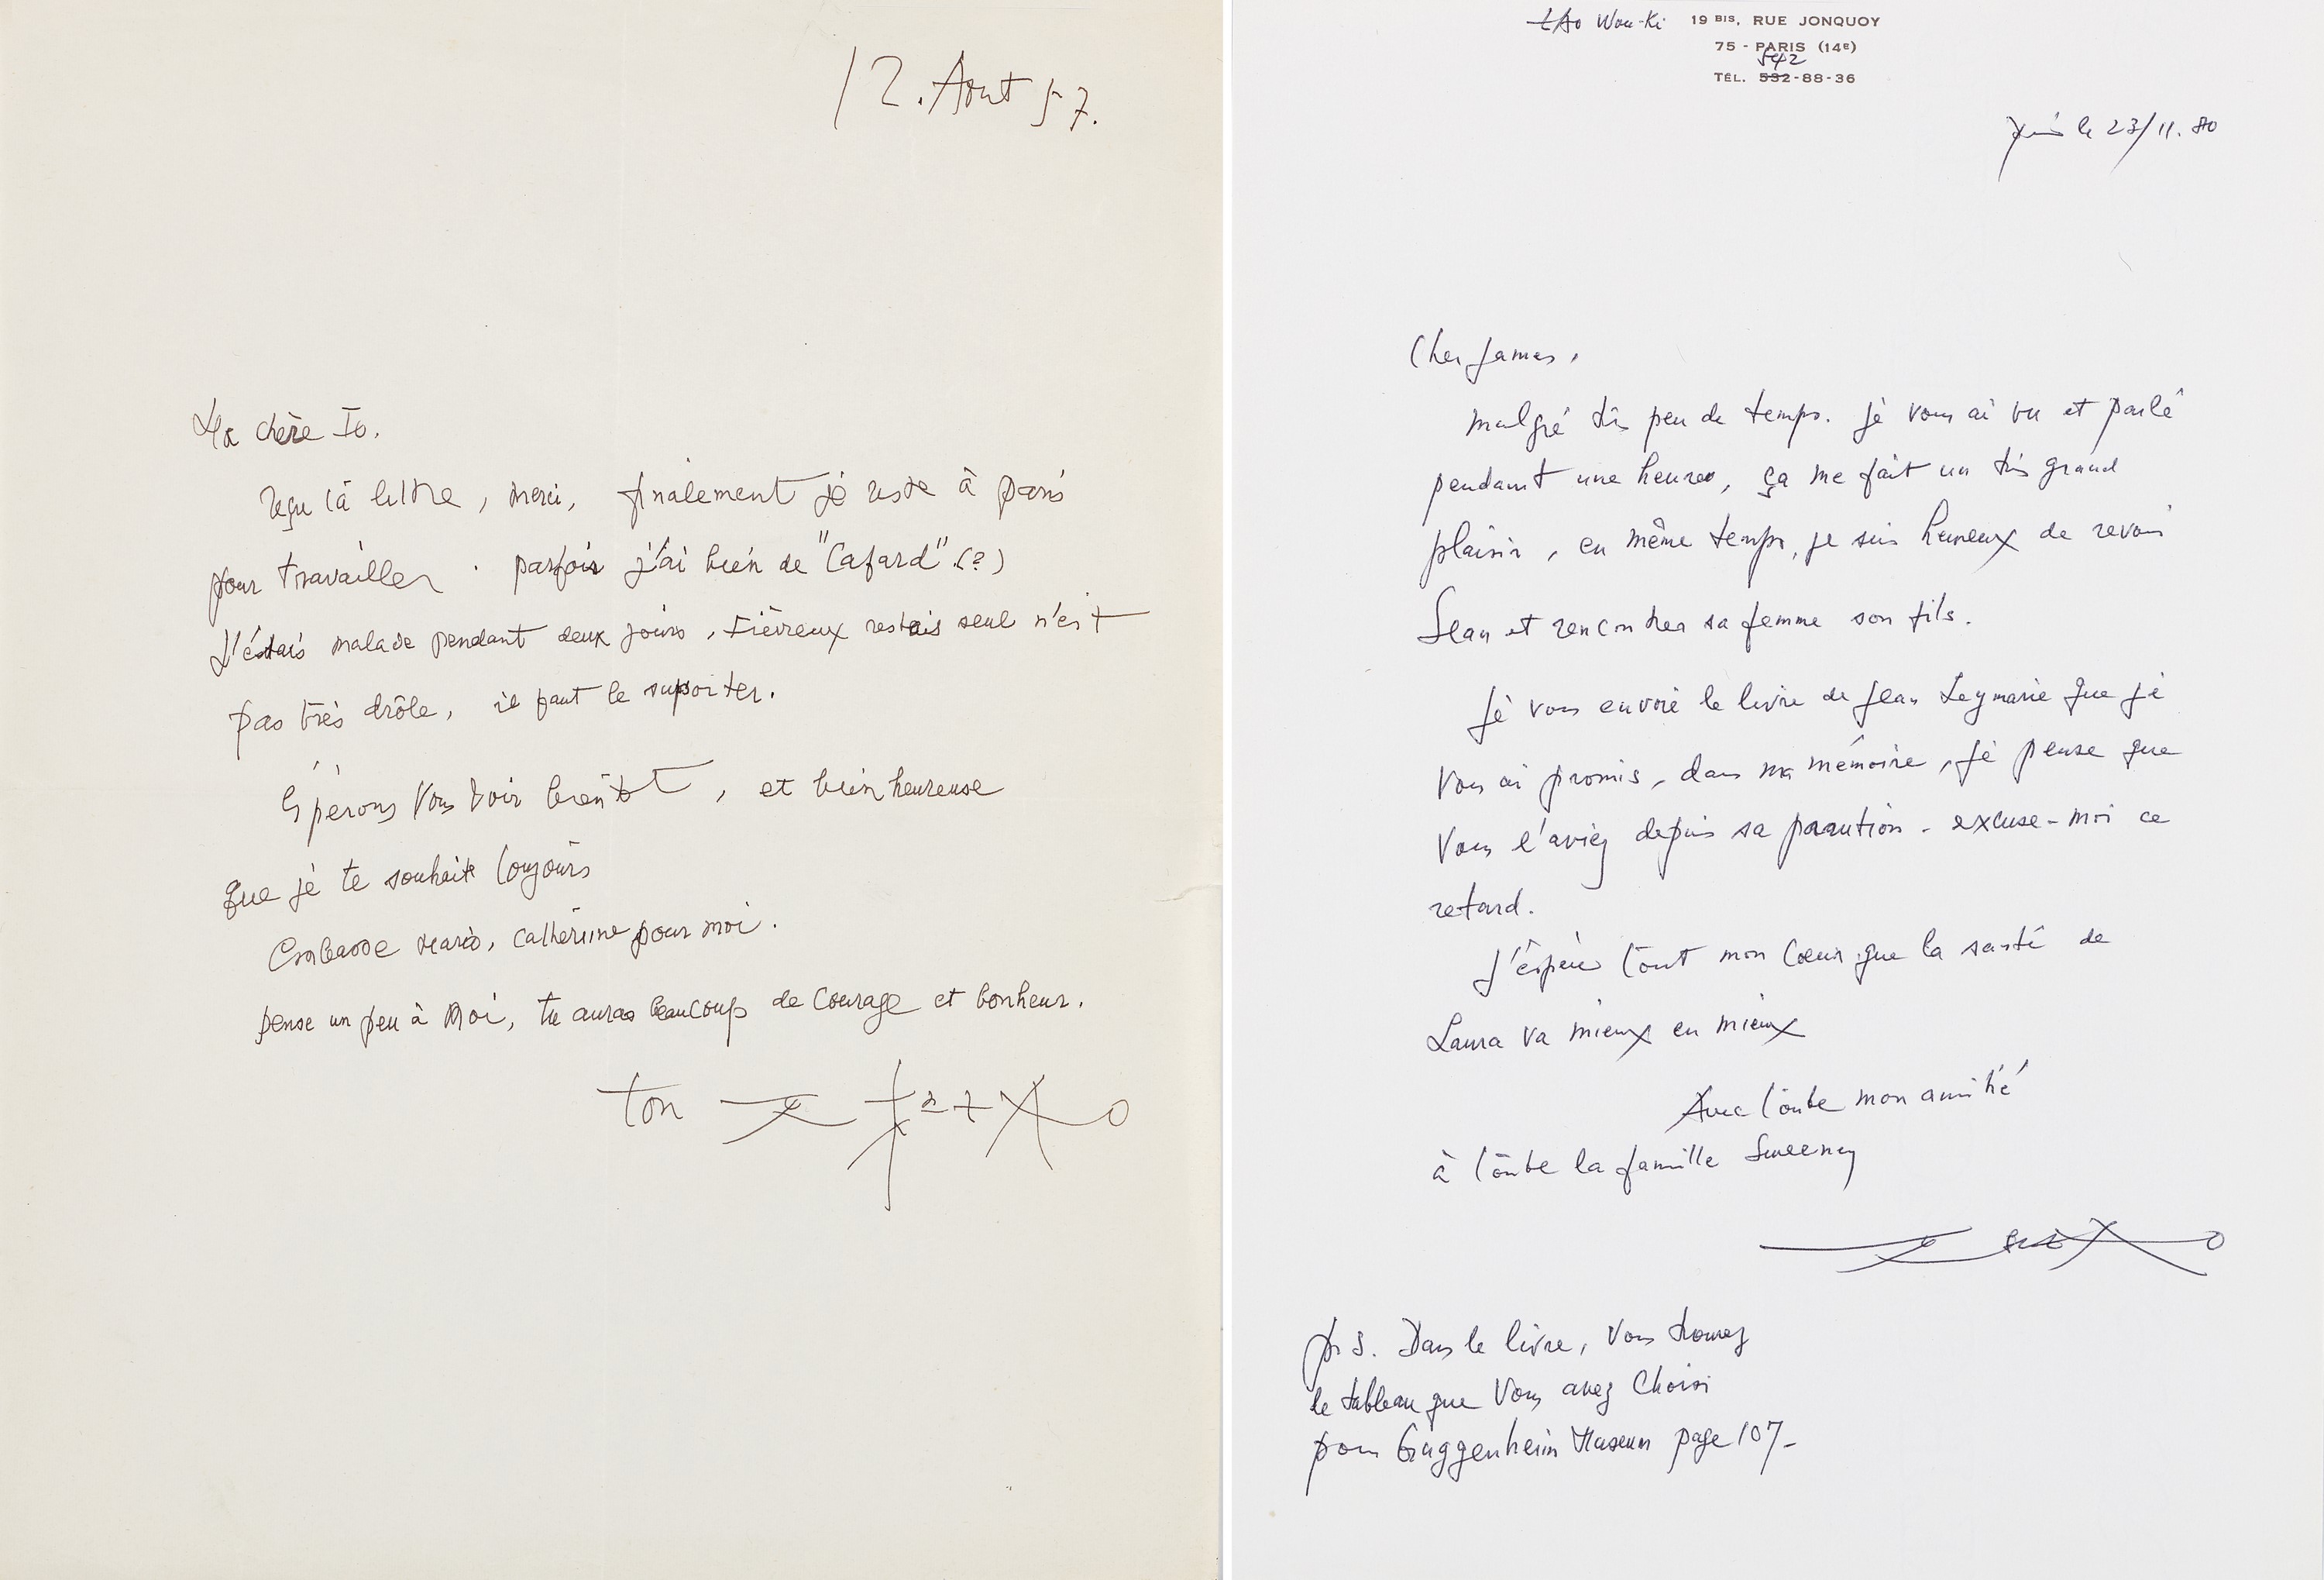 12. Aout 57.
Ma chère Io.
reçu ta lettre, merci, finalement jé reste à paris
pour travailler. parfois j'ai bién de "Cafard".(?)
J'étais malade pendant deux jours, fièvreux restais seul n'est
pas très drôle, il faut le suporter.
éspérons vous voir bientot, et bien heureuse
que jé te souhait toujours
Embrasse Mario, catherine pour moi.
pense un peu à moi, tu auras beaucoup de courage et bonheur.
ton
ZAO Wou-Ki 19 BIS, RUE JONQUOY
75 - PARIS (14E)
542
TÉL. 532-88-36
Paris le 23/11.80
Cher James,
malgré très peu de temps. jé vous ai vu et parlé
pendant une heures, ça me fait un très grand
plaisir, en même temps, je suis heureux de revoir
Sean et rencontrer sa femme son fils.
Jé vous envoie le livre de Jean Leymarie que jé
vous ai promis, dans ma mémoire, jé pense que
vous l'aviez depuis sa paraution - excuse-moi ce
retard.
J'éspère tout mon Cœur que la santé de
Laura va mieux en mieux
Avec toute mon amitié
à toute la famille Sweeney
p. s. Dans le livre, vous trouvez
le tableau que vous avez choisi
pour Guggenheim Museum page 107-